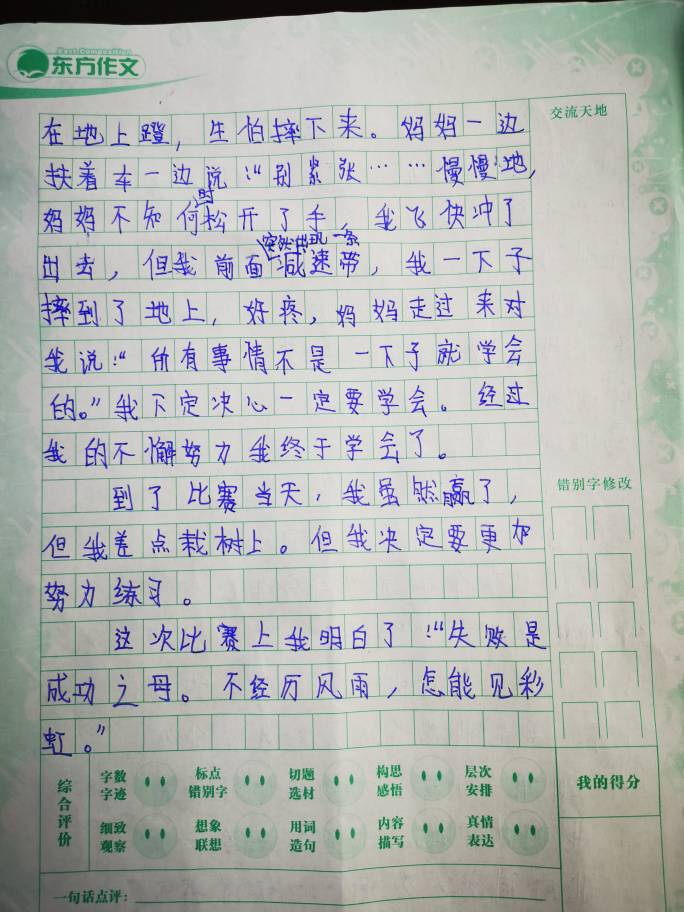 East Composition
东方作文
交流天地
在地上蹬，生怕摔下来。妈妈一边
扶着车一边说：“别紧张……慢慢地，
时
妈妈不知何松开了手，我飞快冲了
突然出现一条
出去，但我前面减速带，我一下子
摔到了地上，好疼，妈妈走过来对
我说：“所有事情不是一下子就学会
的。”我下定决心一定要学会。经过
我的不懈努力我终于学会了。
到了比赛当天，我虽然赢了，
错别字修改
但我差点栽树上。但我决定要更加
努力练习。
这次比赛上我明白了：“失败是
成功之母。不经历风雨，怎能见彩
虹。”
综合评价
字数 标点 切题 构思 层次
字迹 错别字 选材 感悟 安排
细致 想象 用词 内容 真情
观察 联想 造句 描写 表达
我的得分
一句话点评：